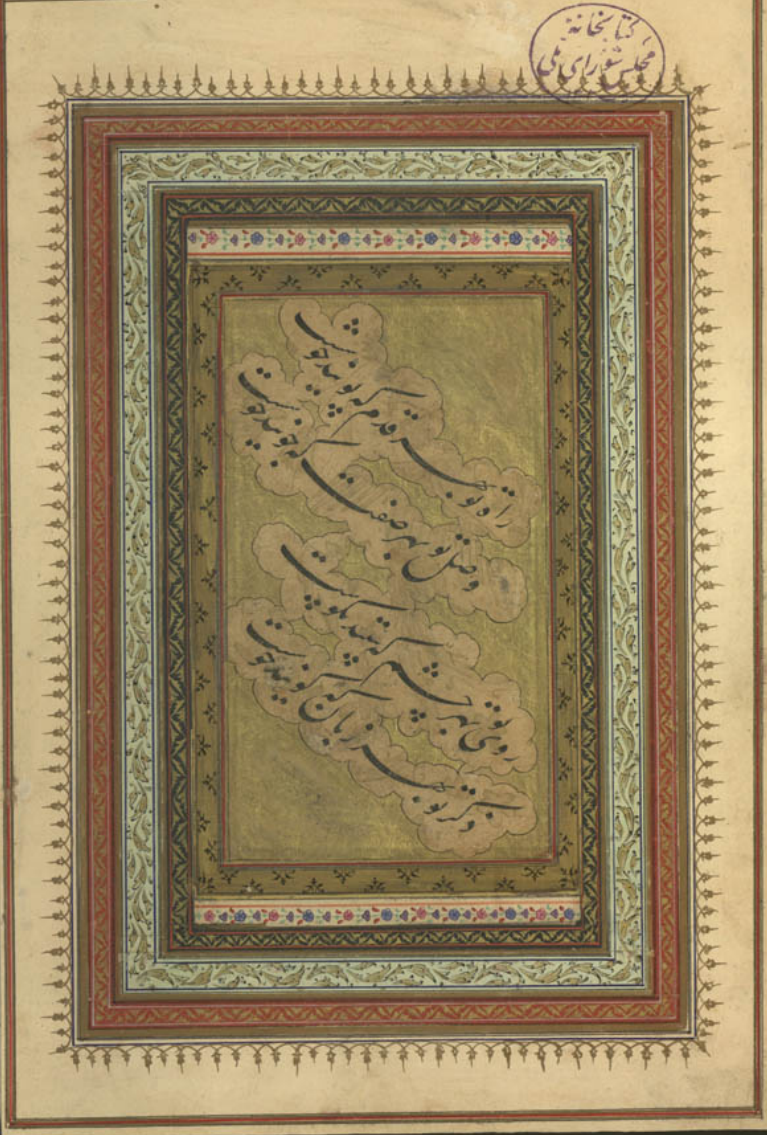 کتابخانهٔ
مجلس شورای ملی
راه تو بهر قدم که پویند خوشست
وصل تو بهر صفت که جویند خوشست
روی تو بهر چشم که بینند نکوست
ذکر تو بهر زبان که گویند خوشست